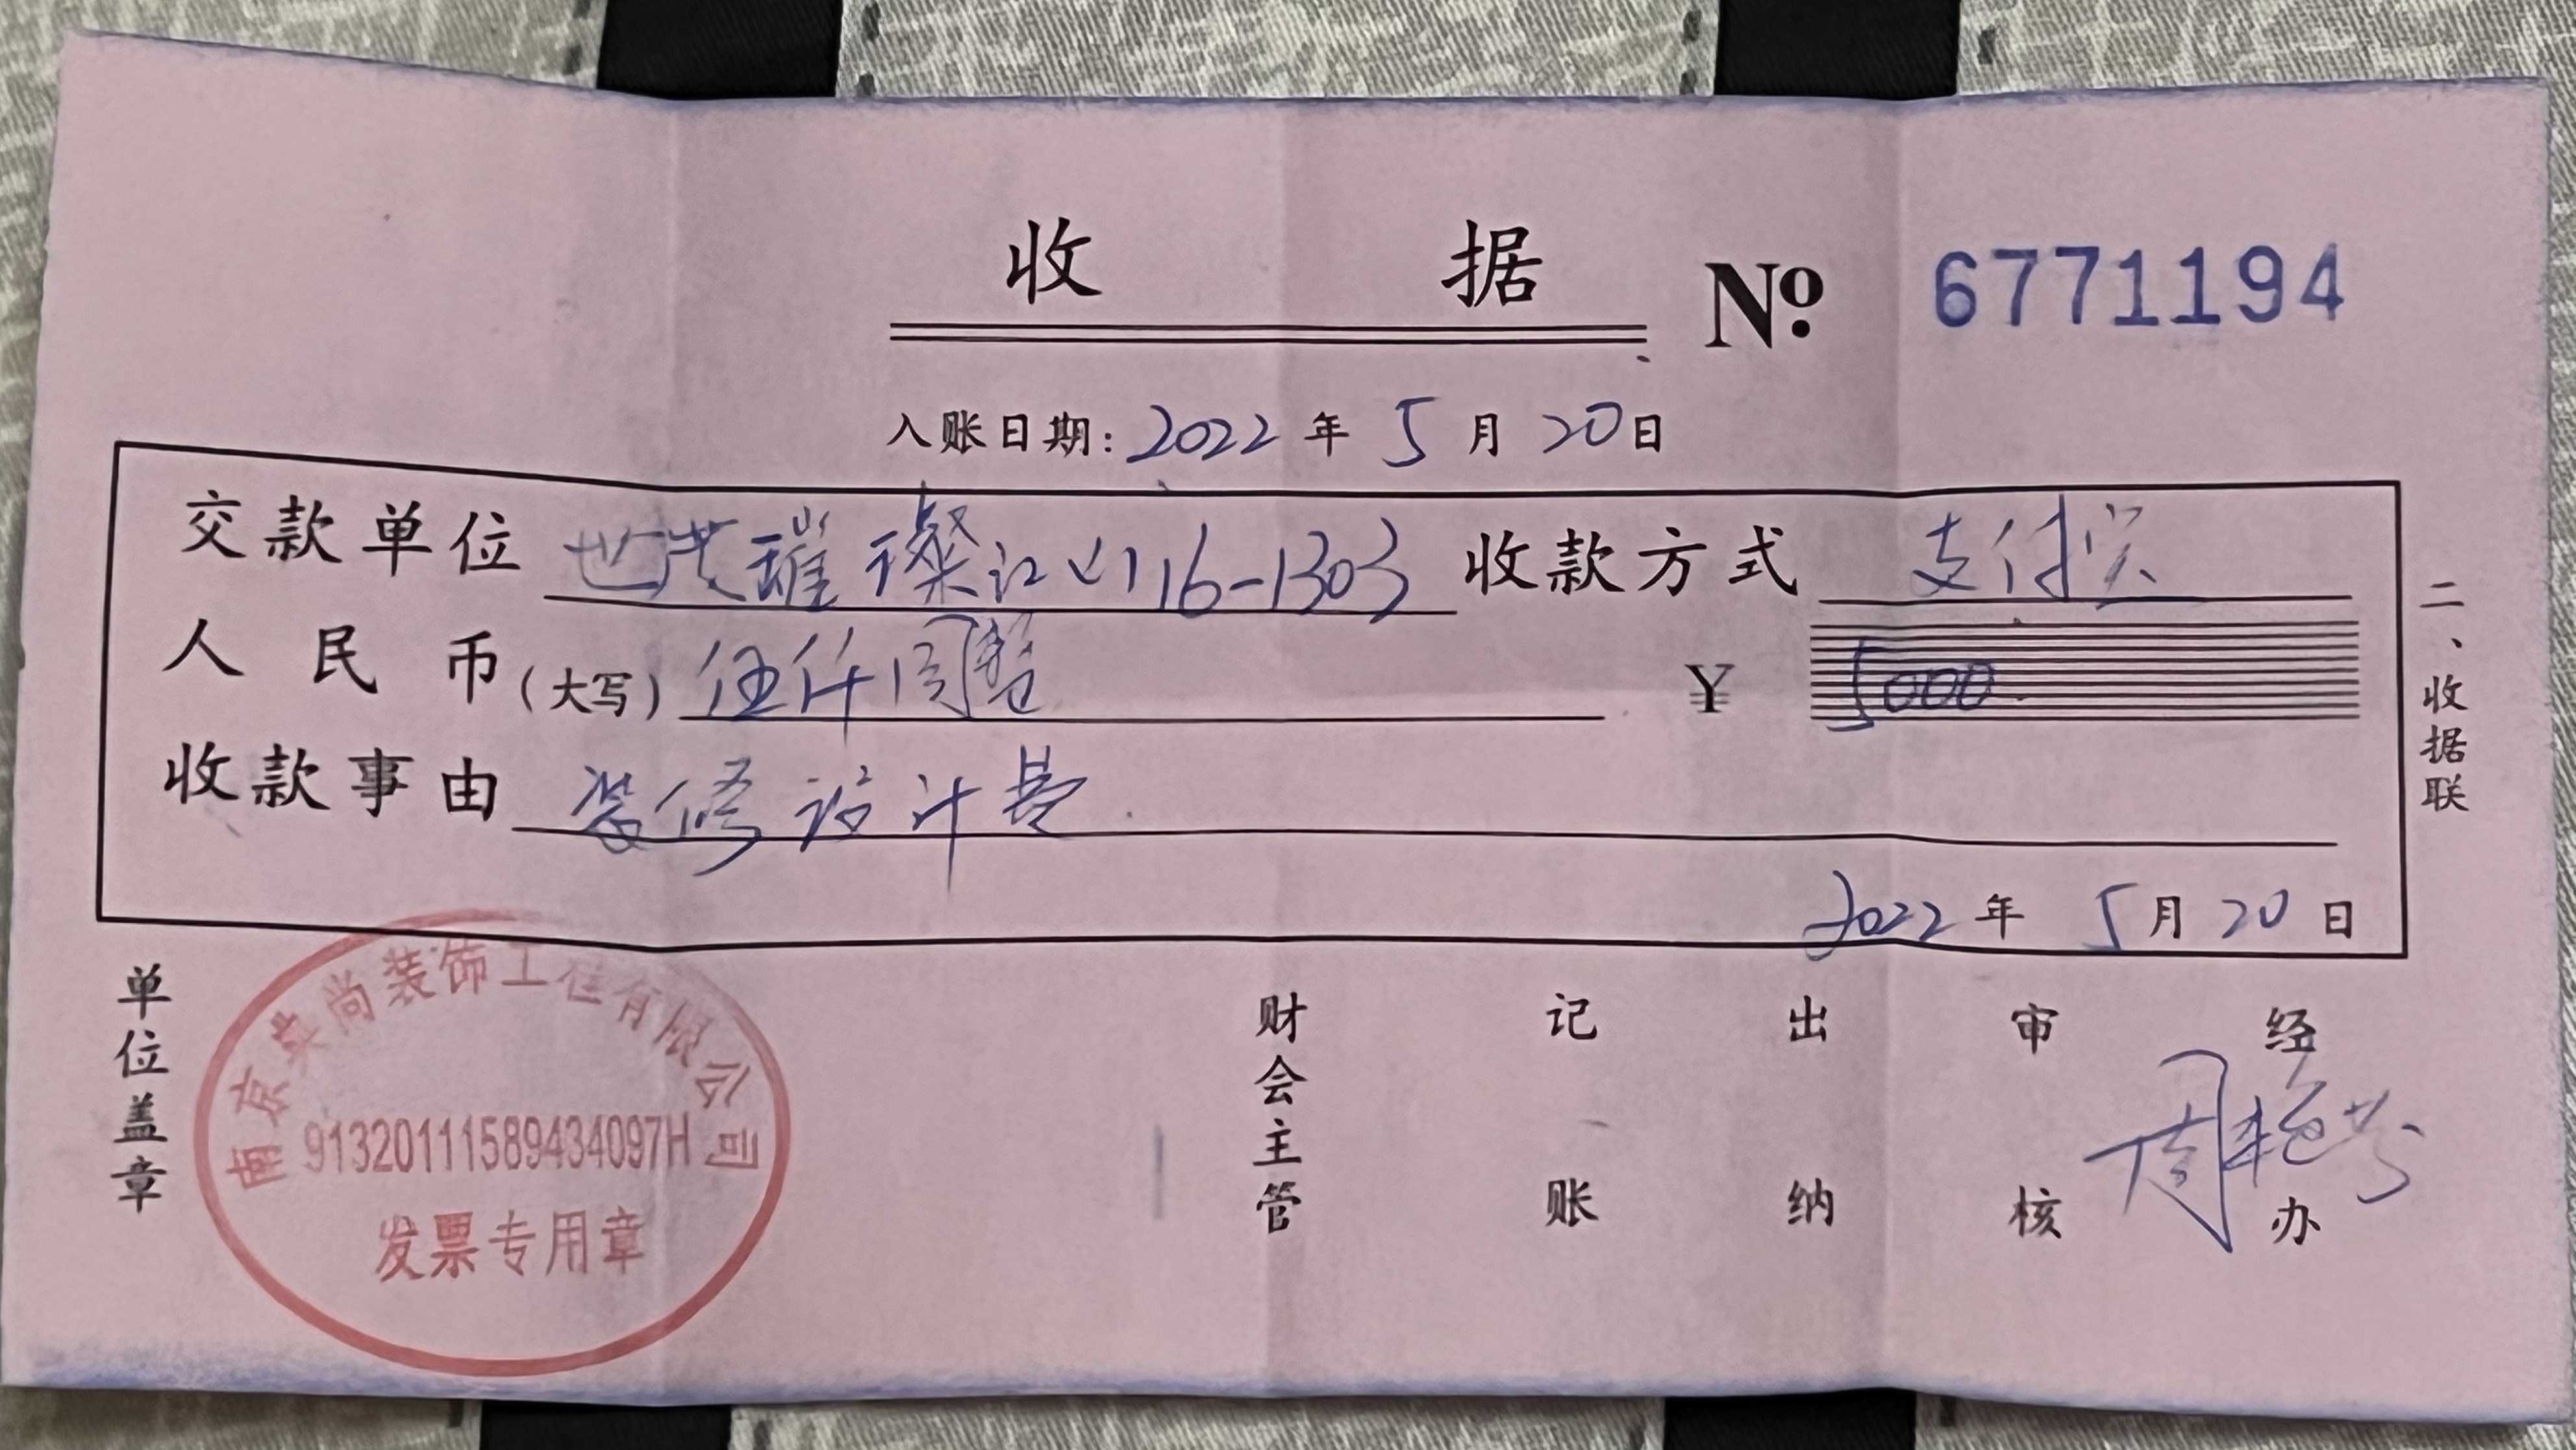 收 据 № 6771194
入账日期: 2022 年 5 月 20 日
交款单位 世茂璀璨江山16-1303 收款方式 支付宝
人民币(大写) 伍仟圆整 ¥ 5000
收款事由 装修设计费
2022 年 5 月 20 日
二、收据联
单位盖章 财会主管 记账 出纳 审核 经办
南京 尚装饰工程有限公司
91320111589434097H
发票专用章